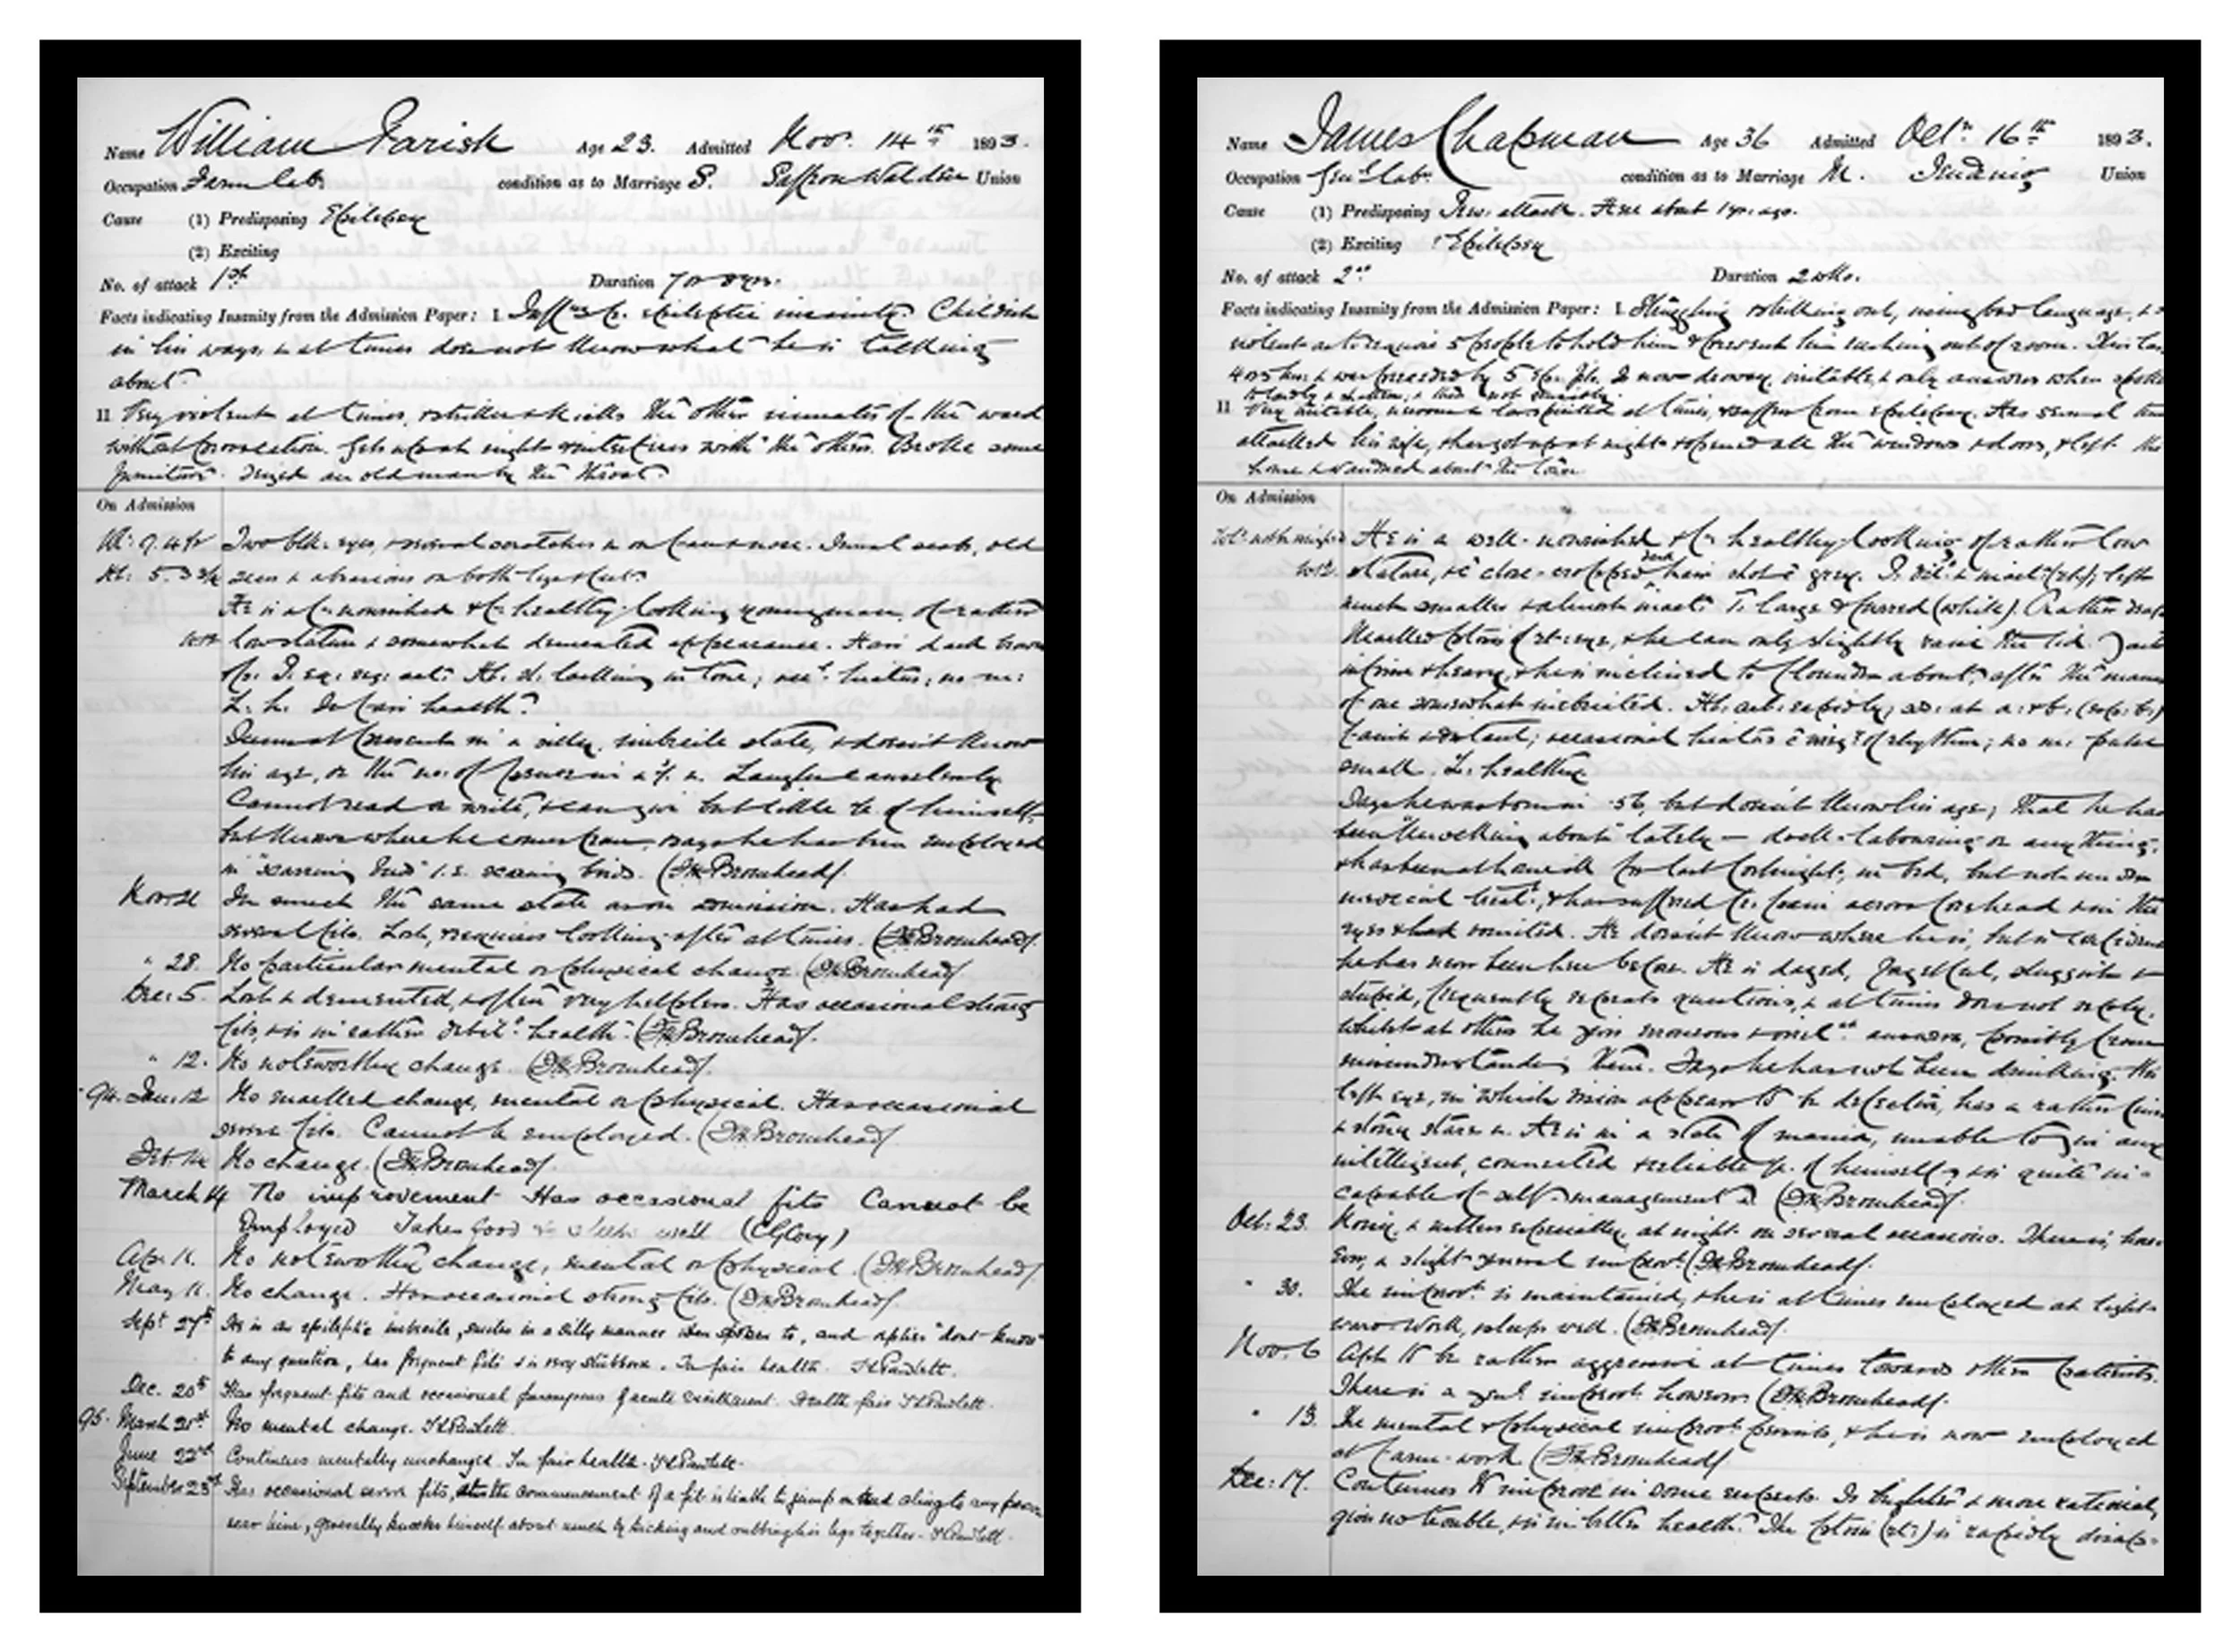 Name William Parish Age 23. Admitted Nov. 14th 1893.
Occupation Farm lab. condition as to Marriage S. Saffron Walden Union
Cause (1) Predisposing Epilepsy
(2) Exciting
No. of attack 1st Duration 7 or 8 yrs.
Facts indicating Insanity from the Admission Paper: I. epileptic insanity. Childish
in his ways, & at times does not know what he is talking
about.
II Very violent at times, strikes & kicks the other inmates of the ward
without provocation. Gets up at night & interferes with the others. Broke some
furniture. Seized an old man by the throat.
On Admission
Two blk. eyes, & several scratches on face & nose. Small scab, old
scars & abrasions on both legs & feet.
He is a nourished & healthy-looking young man, of rather
low stature & somewhat demented appearance. Hair dark brown
lacking in tone;
L. h. In fair health.
Is in a silly, imbecile state, & doesn't know
his age, or the no. of Laughs causelessly.
Cannot read or write, & can give but little of himself,
but knows where he comes from, says he has been employed
in "scarring bird" i.e. scaring birds. (F.H. Bromhead)
Nov. 21 In much the same state as on admission. Has had
several fits. Lost, & requires looking after at times. (F.H. Bromhead)
" 28. No particular mental or physical change. (F.H. Bromhead)
Dec. 5. Lost & demented, & often very helpless. Has occasional strong
fits, & is in rather health. (F.H. Bromhead).
" 12. No noteworthy change. (F.H. Bromhead).
'94. Jan. 12 No marked change, mental or physical. Has occasional
severe fits. Cannot be employed. (F.H. Bromhead).
Feb. 14 No change. (F.H. Bromhead).
March 14 No improvement Has occasional fits Cannot be
Employed Takes food & sleeps well
Apr. 11. No noteworthy change, mental or physical. (F.H. Bromhead)
May 11. No change. Has occasional strong fits. (F.H. Bromhead).
Sept 27th He is an epileptic imbecile, smiles in a silly manner when spoken to, and replies "dont know"
to any question, has frequent fits & is very stubborn. In fair health.
Dec. 20th Has frequent fits and occasional paroxysms of acute excitement. Health fair
95. March 21st No mental change.
June 22nd Continues mentally unchanged. In fair health.
September 23rd Has occasional severe fits, at the commencement of a fit is liable to jump on and cling to any person
near him, generally knocks himself about much by kicking and rubbing his legs together.
Name James Chapman Age 36 Admitted Oct. 16th 1893.
Occupation Genl lab. condition as to Marriage M. Tendring Union
Cause (1) Predisposing Prev. attack. Here about 1 yr. ago.
(2) Exciting ? Epilepsy
No. of attack 2nd Duration 2 wks.
Facts indicating Insanity from the Admission Paper: I. Struggling & striking out, using bad language, & so
violent as to require 5 people to hold him & prevent him rushing out of room. This
4 or 5 hrs. & was preceded by 5 fits. Is now drowsy, irritable, & only answers when spoken
to loudly & shaken, & then not sensibly.
II Very irritable, nervous & low spirited at times, & suffers from epilepsy. Has several times
attacked his wife, & has got up at night & opened all the windows & doors, & left the
house & wandered about the town.
On Admission
He is a well-nourished & healthy-looking, of rather low
stature, close-cropped dark hair shot grey. left
much smaller & almost T. large & furred (white). Rather
marked ptosis of rt. eye, & he can only slightly raise the lid.
& heavy, & he is inclined to flounder about, after the manner
of one somewhat inebriated.
faint & distant; occasional hiatus of rhythm; pulse
small. L. healthy.
Says he was born in '56, but doesn't know his age; that he has
been "knocking about" lately — dock-labouring or anything,
& has been at home ill for last fortnight, in bed, but not under
medical & has suffered pain across forehead & in the
eyes & had vomited. He doesn't know where he is, but is confident
he has never been here before. He is dazed, forgetful, sluggish &
stupid, frequently repeats questions, & at times does not reply,
whilst at others he gives erroneous answers, possibly from
misunderstanding them. Says he has not been drinking. His
left eye, in which vision appears to be defective, has a rather
& stony stare. He is in a state of mania, unable to give any
intelligent, connected & reliable of himself, & is quite in-
capable of self-management. (F.H. Bromhead).
Oct. 23. Noisy, & restless especially, at night on several occasions. There is, how-
ever, a slight general improvt. (F.H. Bromhead).
" 30. The improvt. is maintained, & he is at times employed at light
ward work, & sleeps well. (F.H. Bromhead).
Nov. 6 Apt to be rather aggressive at times towards other patients.
There is a genl. improvt. however. (F.H. Bromhead).
" 13. The mental & physical improvt. persists, & he is now employed
at farm-work. (F.H. Bromhead)
Dec. 17. Continues to improve in some respects. Is brighter & more rational,
gives no trouble, & is in better health. The ptosis (rt.) is rapidly disap-